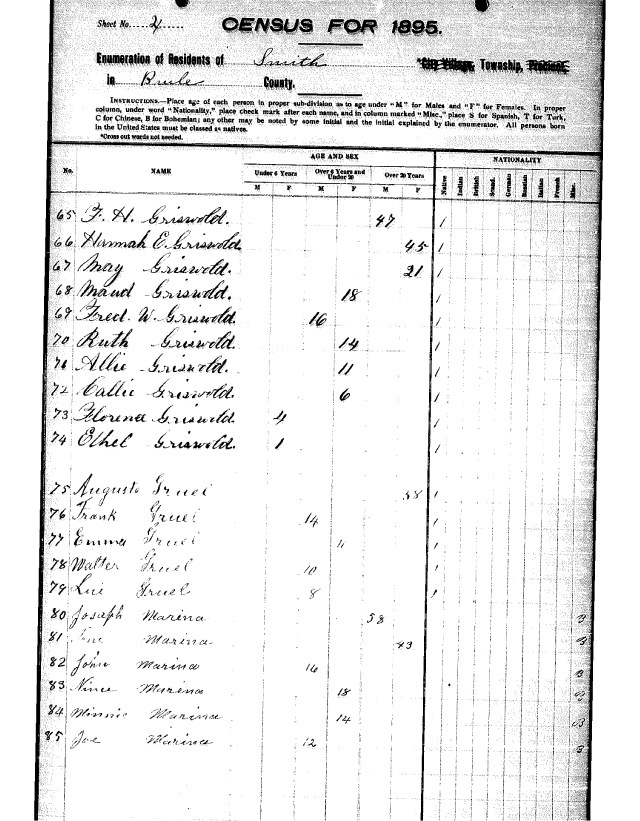 Sheet No. 4
CENSUS FOR 1895.
Enumeration of Residents of Smith *City, Village, Township, Precinct,
in Brule County.
INSTRUCTIONS.—Place age of each person in proper sub-division as to age under "M" for Males and "F" for Females. In proper
column, under word "Nationality," place check mark after each name, and in column marked "Misc.," place S for Spanish, T for Turk,
C for Chinese, B for Bohemian; any other may be noted by some initial and the initial explained by the enumerator. All persons born
in the United States must be classed as natives.
*Cross out words not needed.
AGE AND SEX NATIONALITY
No. NAME Under 6 Years Over 6 Years and Under 20 Over 20 Years Native Indian British Scand. German Russian Italian French Misc.
M F M F M F
65 F. H. Griswold. 47 1
66 Hannah E. Griswold 45 1
67 May Griswold. 21 1
68 Maud Griswold. 18 1
69 Fred. W. Griswold. 16 1
70 Ruth Griswold. 14 1
71 Allie Griswold. 11 1
72 Callie Griswold. 6 1
73 Florena Griswold. 4 1
74 Ethel Griswold. 1 1
75 Augusto Gruel 38 1
76 Frank Gruel 14 1
77 Emma Gruel 11 1
78 Walter Gruel 10 1
79 Lui Gruel 8 1
80 Joseph Marina 58 B
81 Marina 43 B
82 John Marina 16 B
83 Marina 18 B
84 Minnie Marina 14 B
85 Joe Marina 12 B